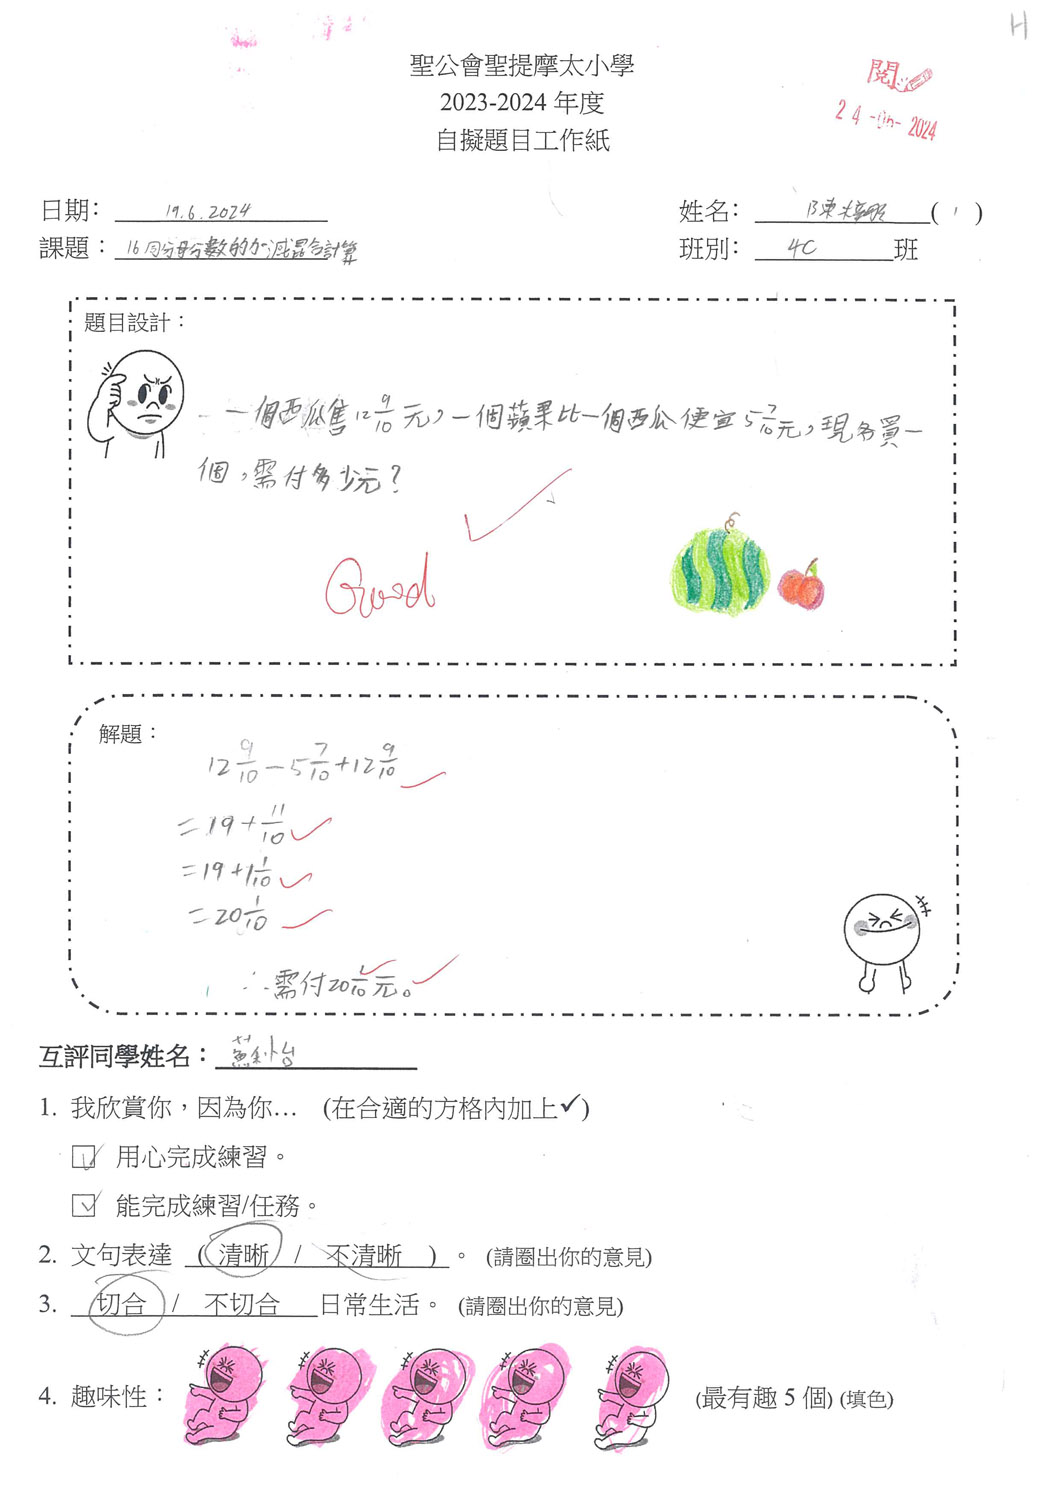 H
聖公會聖提摩太小學
2023-2024 年度
自擬題目工作紙
閱
24-06-2024
日期: 19.6.2024
姓名: 陳 (1)
課題：16同分母分數的加減混合計算
班別: 4C 班
題目設計：
一個西瓜售12 9/10元，一個蘋果比一個西瓜便宜5 7/10元，現各買一
個，需付多少元？
Good
解題：
12 9/10 - 5 7/10 + 12 9/10
= 19 + 11/10
= 19 + 1 1/10
= 20 1/10
∴需付20 1/10元。
互評同學姓名：蘇
1. 我欣賞你，因為你… (在合適的方格內加上✓)
☑ 用心完成練習。
☑ 能完成練習/任務。
2. 文句表達 ( 清晰 / 不清晰 ) 。 (請圈出你的意見)
3. 切合 / 不切合 日常生活。 (請圈出你的意見)
4. 趣味性： (最有趣 5 個) (填色)